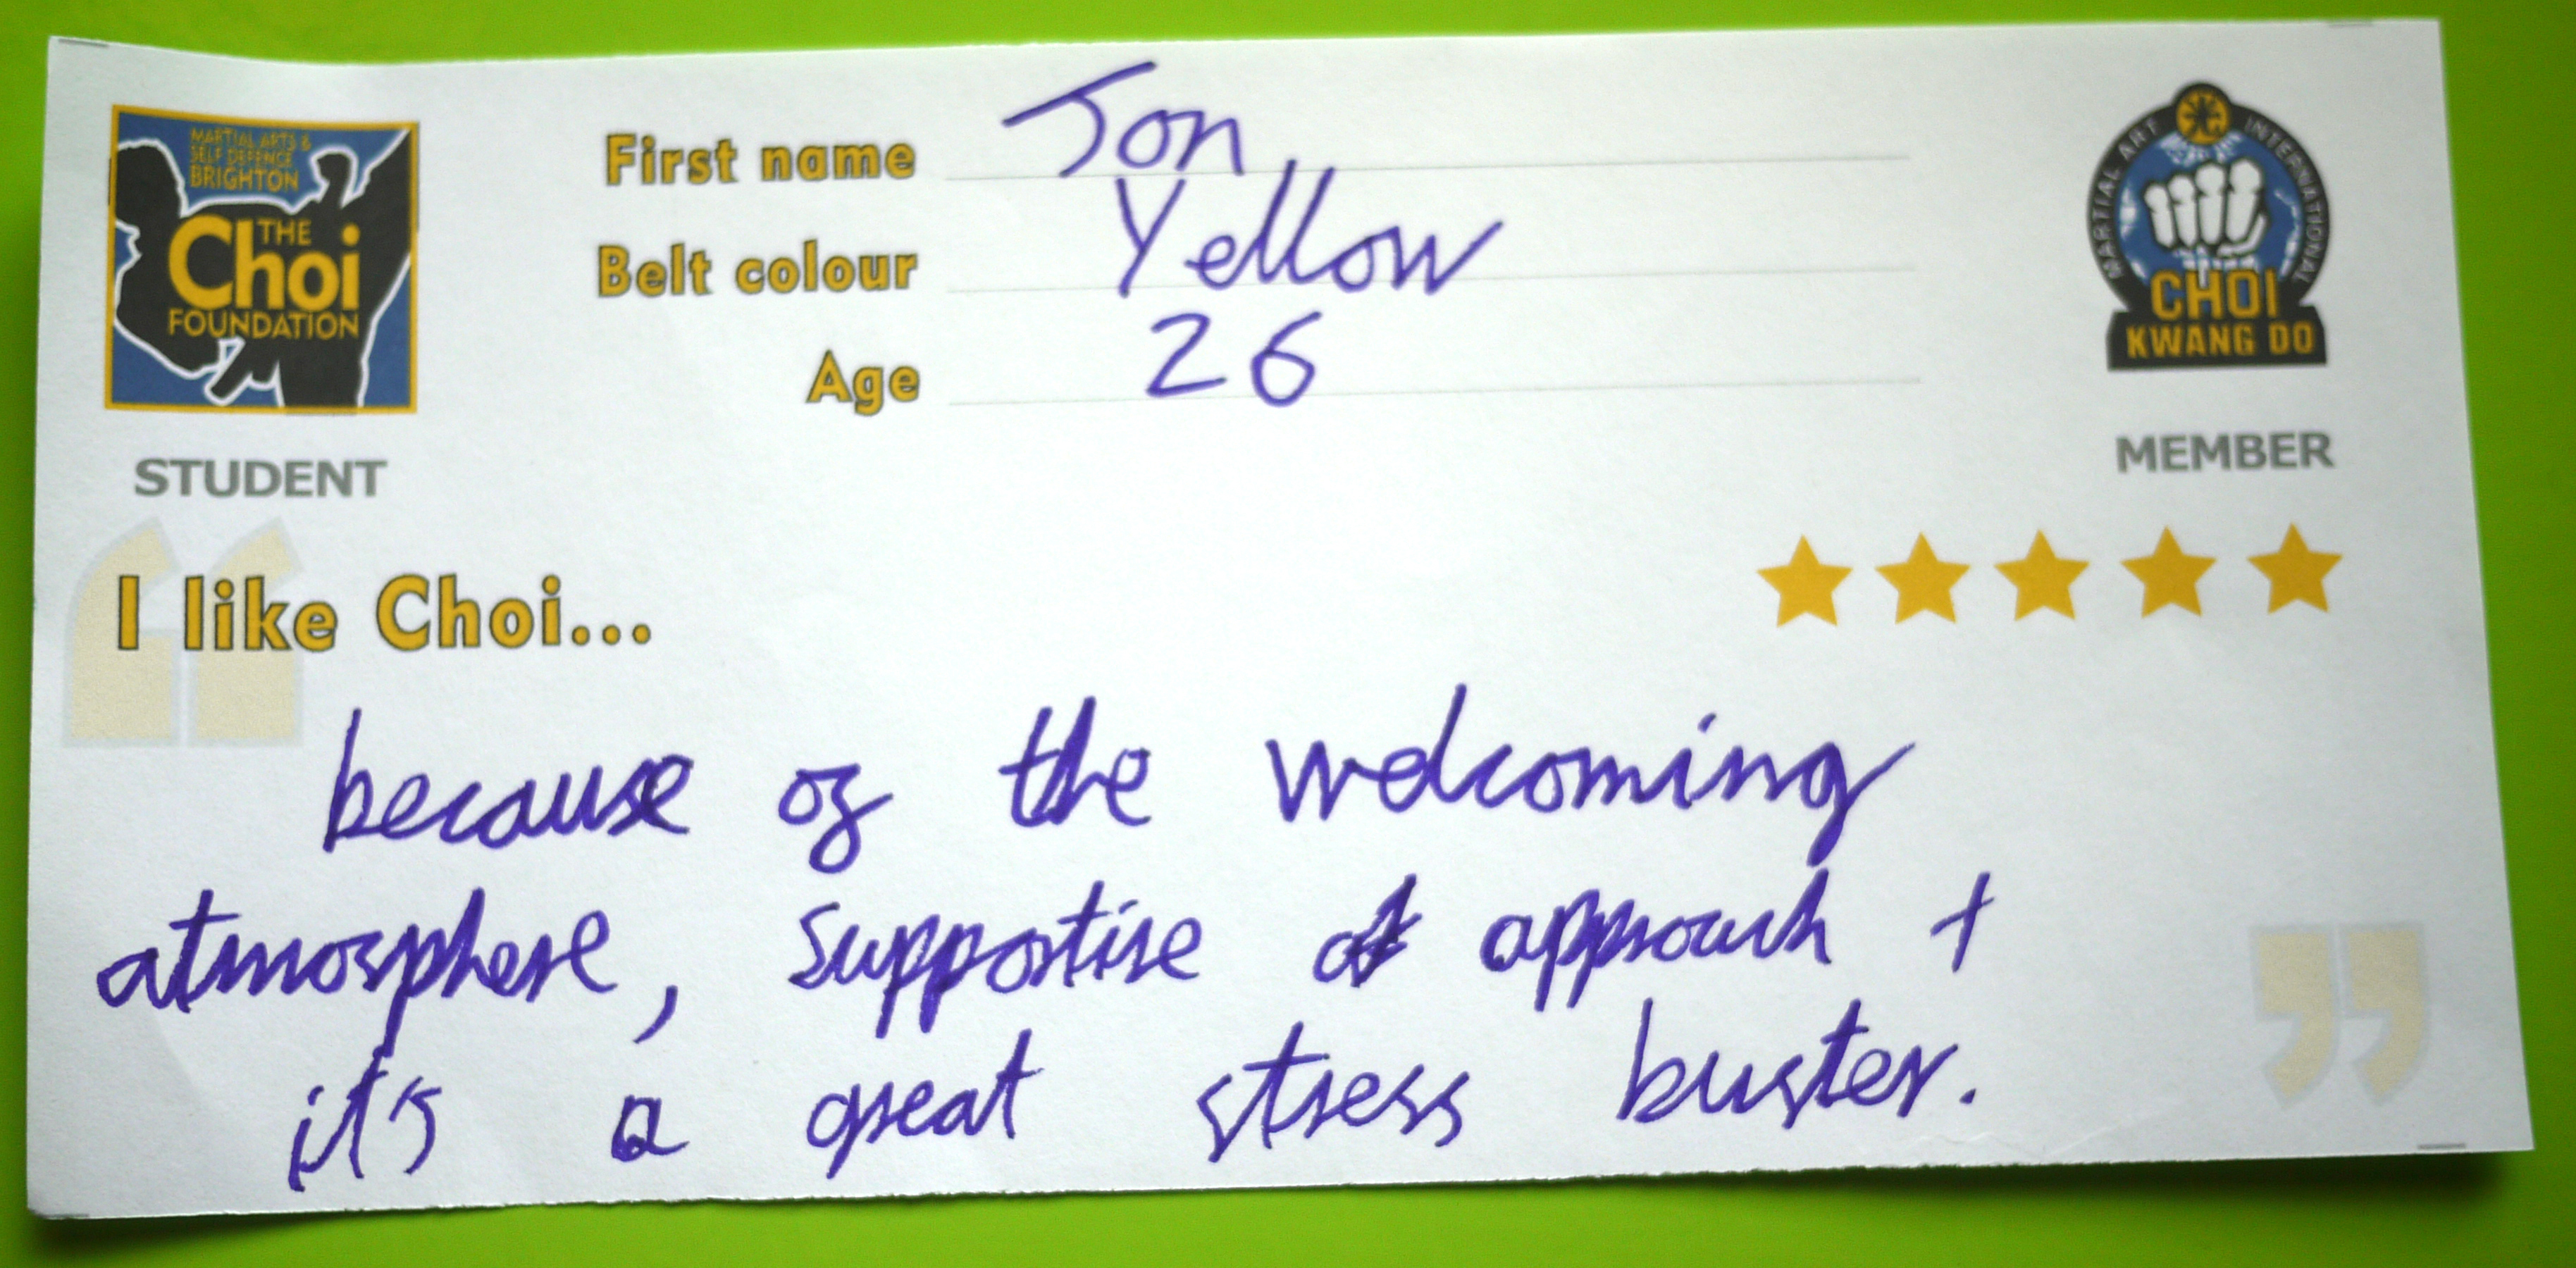 MARTIAL ARTS &
SELF DEFENCE
BRIGHTON
THE
Choi
FOUNDATION
STUDENT
First name Jon
Belt colour Yellow
Age 26
MARTIAL ART INTERNATIONAL
CHOI
KWANG DO
MEMBER
I like Choi...
because of the welcoming
atmosphere, supportive approach +
it's a great stress buster.